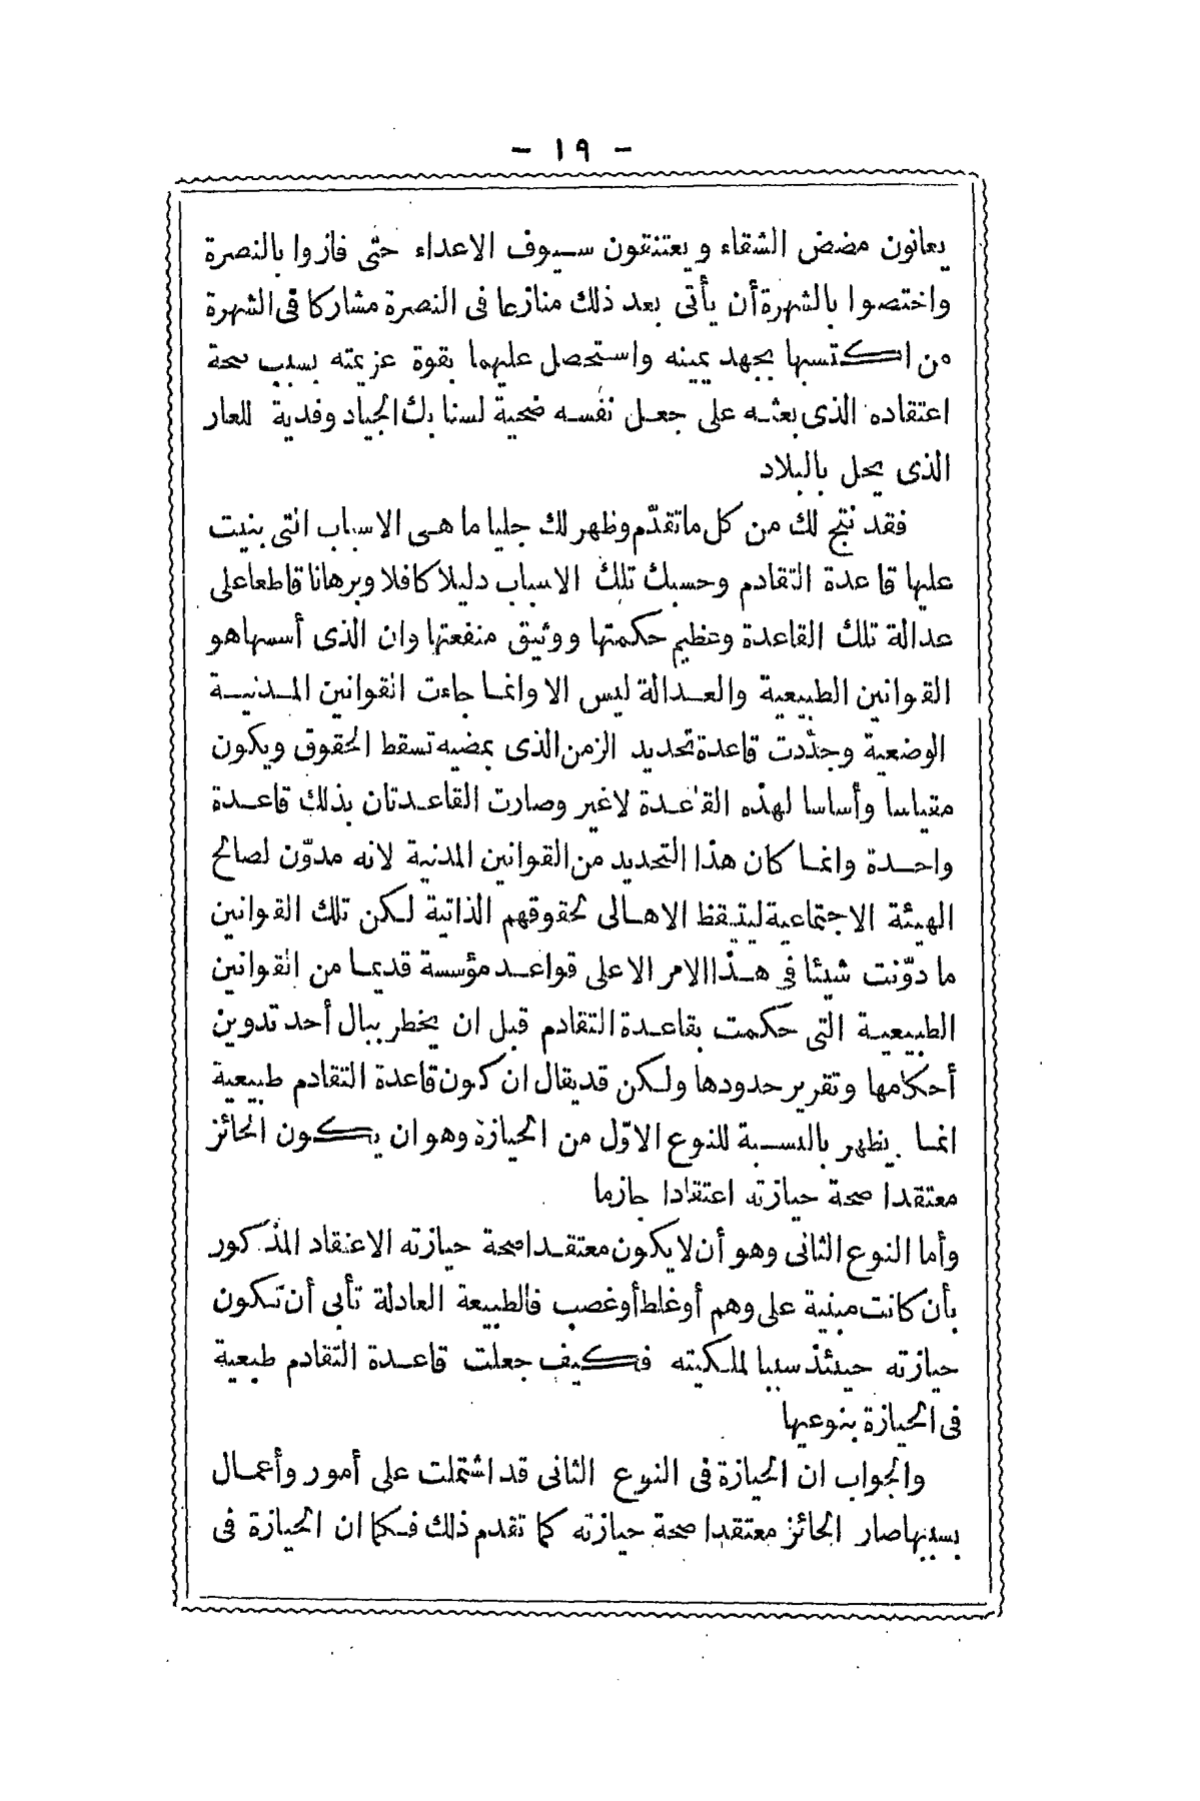 - ١٩ -
يعانون مضض الشقاء ويعتنقون سيوف الاعداء حتّى فازوا بالنصرة
واختصوا بالشهرة أن يأتى بعد ذلك منازعا فى النصرة مشاركا فى الشهرة
من اكتسبها بجهد يمينه واستحصل عليهما بقوة عزيمته بسبب صحة
اعتقاده الذى بعثه على جعل نفسه ضحية لسنابك الجياد وفدية للعار
الذى يحل بالبلاد
فقد نتج لك من كل ما تقدّم وظهر لك جليا ما هى الاسباب التى بنيت
عليها قاعدة التقادم وحسبك تلك الاسباب دليلا كافلا وبرهانا قاطعا على
عدالة تلك القاعدة وعظيم حكمتها ووثيق منفعتها وان الذى أسسها هو
القوانين الطبيعية والعدالة ليس الا وانما جاءت القوانين المدنية
الوضعية وحدّدت قاعدة تحديد الزمن الذى بمضيه تسقط الحقوق ويكون
مقياسا وأساسا لهذه القاعدة لا غير وصارت القاعدتان بذلك قاعدة
واحدة وانما كان هذا التحديد من القوانين المدنية لانه مدوّن لصالح
الهيئة الاجتماعية ليتيقظ الاهالى لحقوقهم الذاتية لكن تلك القوانين
ما دوّنت شيئا فى هذا الامر الا على قواعد مؤسسة قديما من القوانين
الطبيعية التى حكمت بقاعدة التقادم قبل ان يخطر ببال أحد تدوين
أحكامها وتقرير حدودها ولكن قد يقال ان كون قاعدة التقادم طبيعية
انما يظهر بالنسبة للنوع الاوّل من الحيازة وهو ان يكون الحائز
معتقدا صحة حيازته اعتقادا جازما
وأما النوع الثانى وهو أن لا يكون معتقدا صحة حيازته الاعتقاد المذكور
بأن كانت مبنية على وهم أو غلط أو غصب فالطبيعة العادلة تأبى أن تكون
حيازته حينئذ سببا لملكيته فكيف جعلت قاعدة التقادم طبيعية
فى الحيازة بنوعيها
والجواب ان الحيازة فى النوع الثانى قد اشتملت على أمور وأعمال
بسببها صار الحائز معتقدا صحة حيازته كما تقدم ذلك فكما ان الحيازة فى